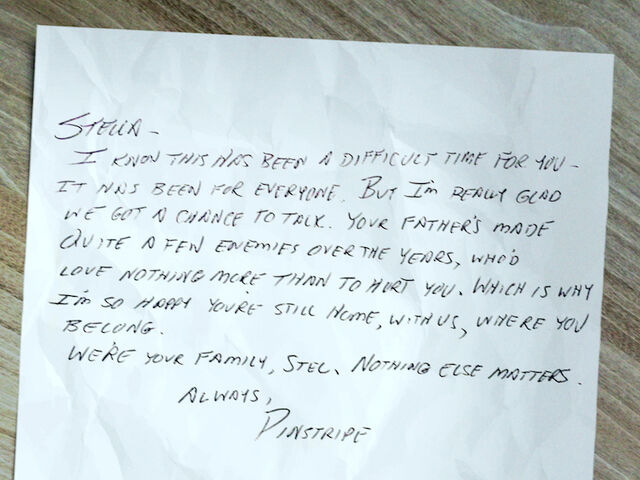 STELLA -
I KNOW THIS HAS BEEN A DIFFICULT TIME FOR YOU -
IT HAS BEEN FOR EVERYONE. BUT I'M REALLY GLAD
WE GOT A CHANCE TO TALK. YOUR FATHER'S MADE
QUITE A FEW ENEMIES OVER THE YEARS, WHO'D
LOVE NOTHING MORE THAN TO HURT YOU. WHICH IS WHY
I'M SO HAPPY YOU'RE STILL HOME, WITH US, WHERE YOU
BELONG.
WE'RE YOUR FAMILY, STEL. NOTHING ELSE MATTERS.
ALWAYS,
PINSTRIPE